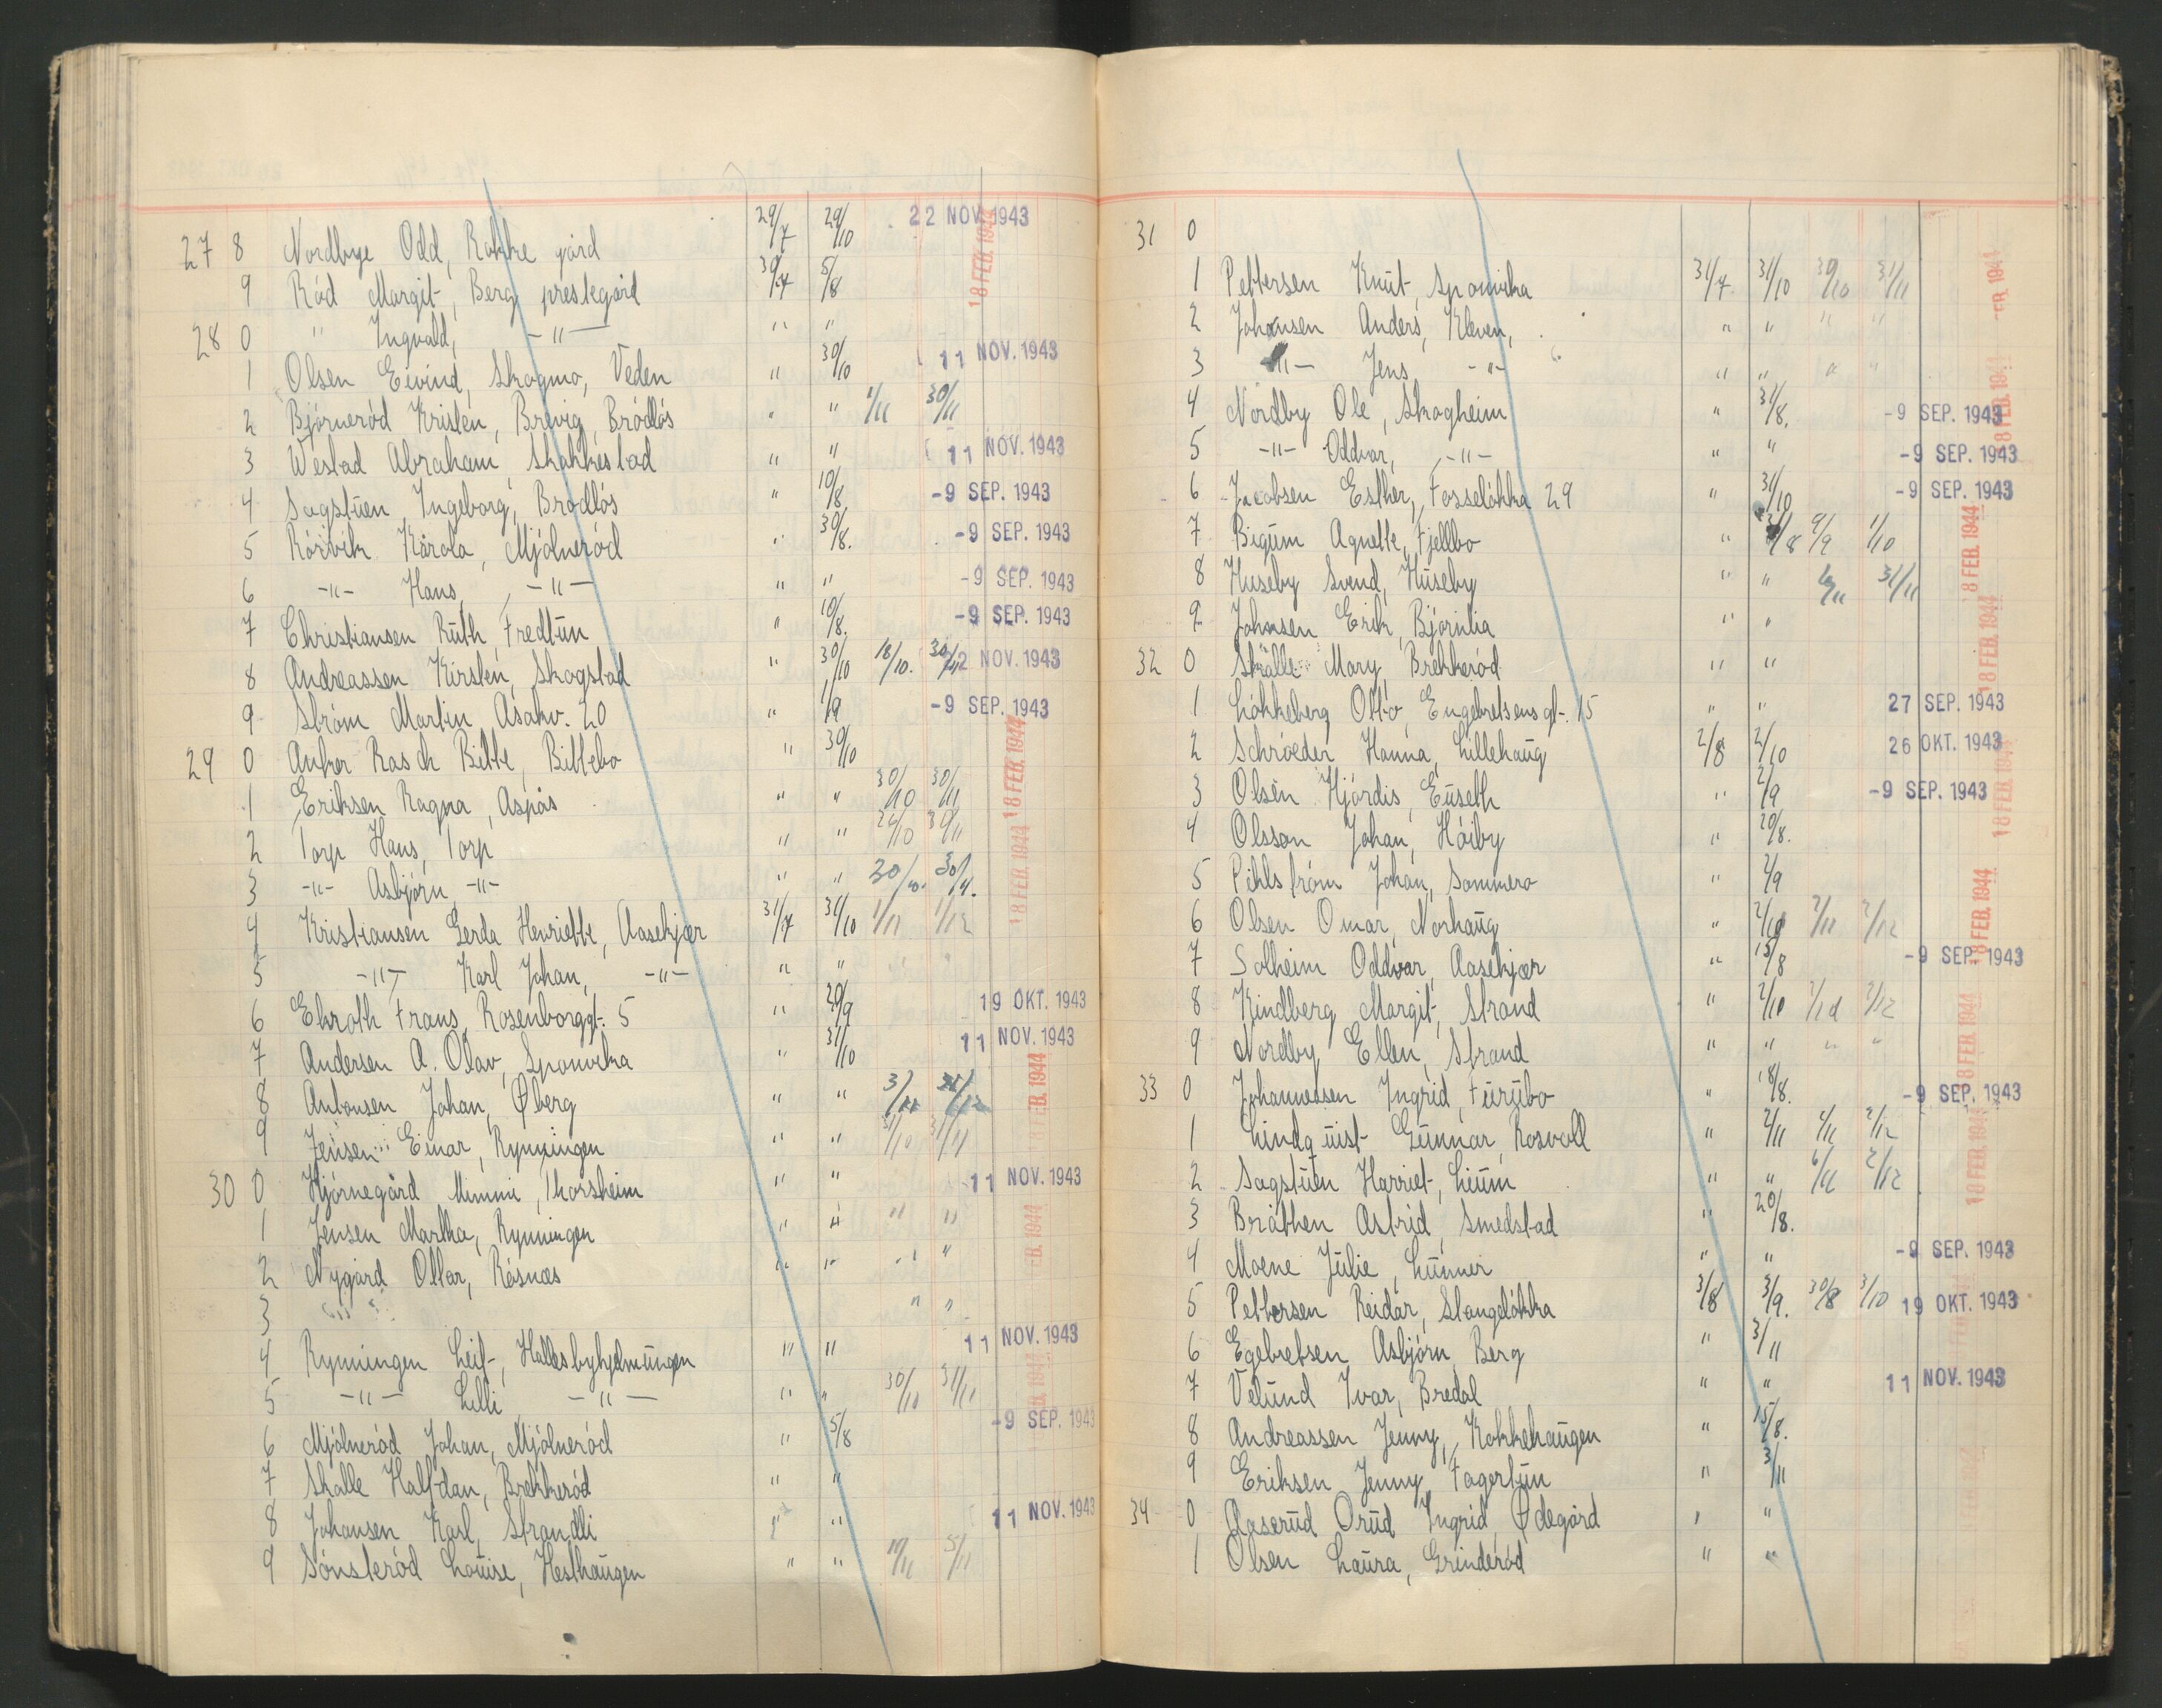 27 8 Nordbye Odd, Rokke gård 29/7 29/10 22 NOV. 1943
9 Rød Margit, Berg prestegård 30/7 5/8 18 FEB. 1944
28 0 " Ingvald, -"- " "
1 Olsen Eivind, Skogmo, Veden " 30/10 11 NOV. 1943
2 Bjørnerød Kristen, Brevig, Brødløs " " 1/11 30/11
3 Westad Abraham, Skakkestad " " 11 NOV. 1943
4 Sagstuen Ingeborg, Brødløs " 10/8 -9 SEP. 1943
5 Rørvik Karola, Mjølnerød " 30/8. -9 SEP. 1943
6 -"- Hans, -"- " " -9 SEP. 1943
7 Christiansen Ruth, Fredtun " 10/8. -9 SEP. 1943
8 Andreassen Kirsten, Skogstad " 30/10 18/10. 30/11 22 NOV. 1943
9 Strøm Martin, Asakv. 20 " 1/9 -9 SEP. 1943
29 0 Anker Rasch Bitte, Bittebo " 30/10 18 FEB. 1944
1 Eriksen Ragna, Aspås " " 30/10 30/11
2 Torp Hans, Torp " " 24/10 30/11 18 FEB. 1944
3 -"- Asbjørn, -"- " " 30/10. 30/11.
4 Kristiansen Gerda Henriette, Aasekjær 31/7 31/10 1/11 1/12
5 -"- Karl Johan, -"- " " " "
6 Ekroth Frans, Rosenborggt. 5 " 30/9 19 OKT. 1943
7 Andersen A. Olav, Sponvika " 31/10 11 NOV. 1943
8 Antonsen Johan, Øberg " "
9 Jensen Einar, Rynningen " " 31/10 31/11
30 0 Hjørnegård Mimmi, Thorsheim " " 11 NOV. 1943
1 Jensen Martha, Rynningen " " " "
2 Nygård Ottar, Råsnæs " " " "
3 " "
4 Rynningen Leif, Hallesbyhjelmungen " " 11 NOV. 1943
5 -"- Lilli -"- " " 30/10 31/11
6 Mjølnerød Johan, Mjølnerød " 5/8 -9 SEP. 1943
7 Skalle Halfdan, Brekkerød " "
8 Johansen Karl, Strandli " " 11 NOV. 1943
9 Sønsterød Louise, Hesthaugen " "
31 0
1 Pettersen Knut, Sponvika 31/7. 31/10 30/10 31/11
2 Johansen Anders, Kleven, " " " "
3 -"- Jens -"- " " " "
4 Nordby Ole, Skogheim " 31/8. -9 SEP. 1943
5 -"- Oddvar, -"- " " -9 SEP. 1943
6 Jacobsen Esther, Fosseløkka 29 " 31/10 -9 SEP. 1943
7 Bigum Agnette, Fjellbo " 9/9 1/10 18 FEB. 1944
8 Huseby Svend, Huseby " " 31/11
9 Johnsen Erik, Bjørnlia " "
32 0 Skälle Mary, Brekkerød " " 18 FEB. 1944
1 Løkkeberg Otto, Engebretsensgt. 15 " " 27 SEP. 1943
2 Schrøeder Hanna, Lillehaug 2/8 2/10 26 OKT. 1943
3 Olsen Hjørdis, Euseth " 2/9 -9 SEP. 1943
4 Olsson Johan, Høiby " 20/8. 18 FEB. 1944
5 Pihlstrøm Johan, Sommero " 2/9
6 Olsen Omar, Norhaug " 2/10 2/11 2/12 18 FEB. 1944
7 Solheim Oddvar, Aasekjær " 15/8 -9 SEP. 1943
8 Kindberg Margit, Strand " 2/10 2/12
9 Nordby Ellen, Strand " " " " 18 FEB. 1944
33 0 Johannessen Ingrid, Furubo " 18/8. -9 SEP. 1943
1 Lindquist Gunnar, Rosvoll " 2/11 2/11 2/12
2 Sagstuen Harriet, Lieum " " 6/11 2/12 18 FEB. 1944
3 Bråthen Astrid, Smedstad " 20/8.
4 Moene Julie, Lunner " " -9 SEP. 1943
5 Pettersen Reidar, Stangeløkka 3/8 3/9. 30/8 3/10 19 OKT. 1943
6 Egebretsen Asbjørn, Berg " 3/11
7 Velund Ivar, Bredal " " 11 NOV. 1943
8 Andreassen Jenny, Kokkehaugen " 15/8.
9 Eriksen Jenny, Fagertun " 3/11
34 0 Aaserud Orud Ingrid, Ødegård " "
1 Olsen Laura, Grinderød " "